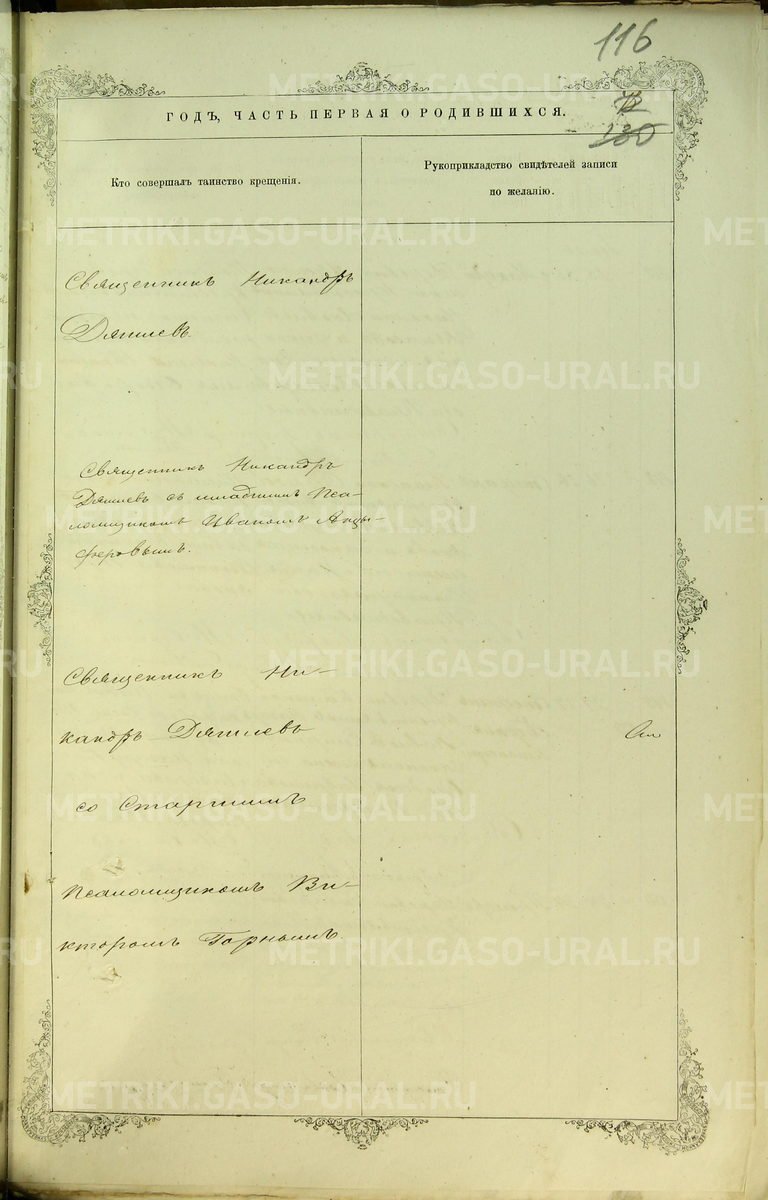 116
ГОДЪ, ЧАСТЬ ПЕРВАЯ О РОДИВШИХСЯ.
130
Кто совершалъ таинство крещенія.
Рукоприкладство свидѣтелей записи
по желанію.
Священникъ Никандръ
Дягилевъ.
Священникъ Никандръ
Дягилевъ съ младшимъ Пса-
ломщикомъ Иваномъ Анцы-
феровымъ.
Священникъ Ни-
кандръ Дягилевъ
со Старшимъ
Псаломщикомъ Ви-
кторомъ Горнымъ.
METRIKI.GASO-URAL.RU